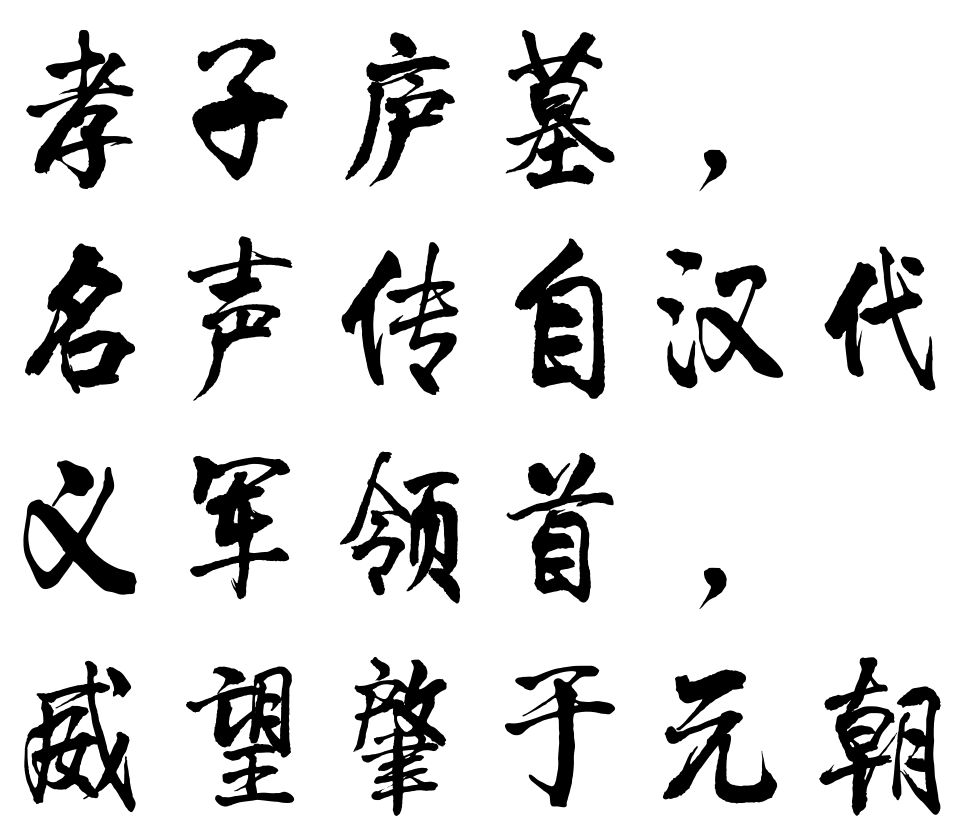 孝子庐墓，
名声传自汉代
义军领首，
威望肇于元朝